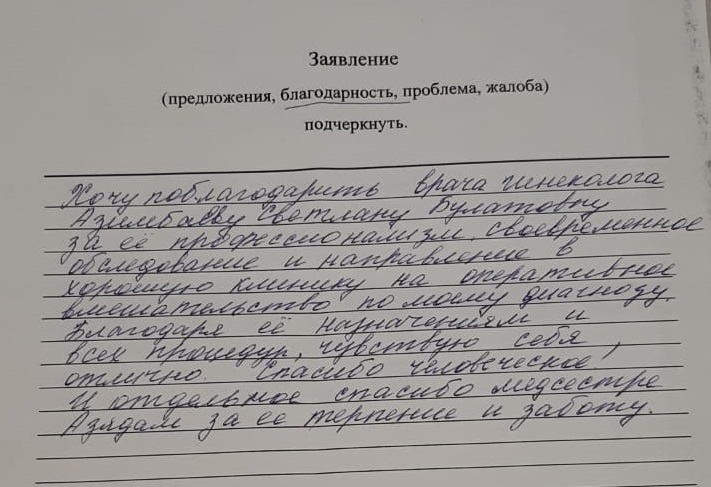 Заявление
(предложения, благодарность, проблема, жалоба)
подчеркнуть.
Хочу поблагодарить врача гинеколога
Азимбаеву Светлану Булатовну
за её профессионализм, своевременное
обследование и направление в
хорошую клинику на оперативное
вмешательство по моему диагнозу.
Благодаря её назначениям и
всех процедур, чувствую себя,
отлично. Спасибо человеческое!
И отдельное спасибо медсестре
за ее терпение и заботу.